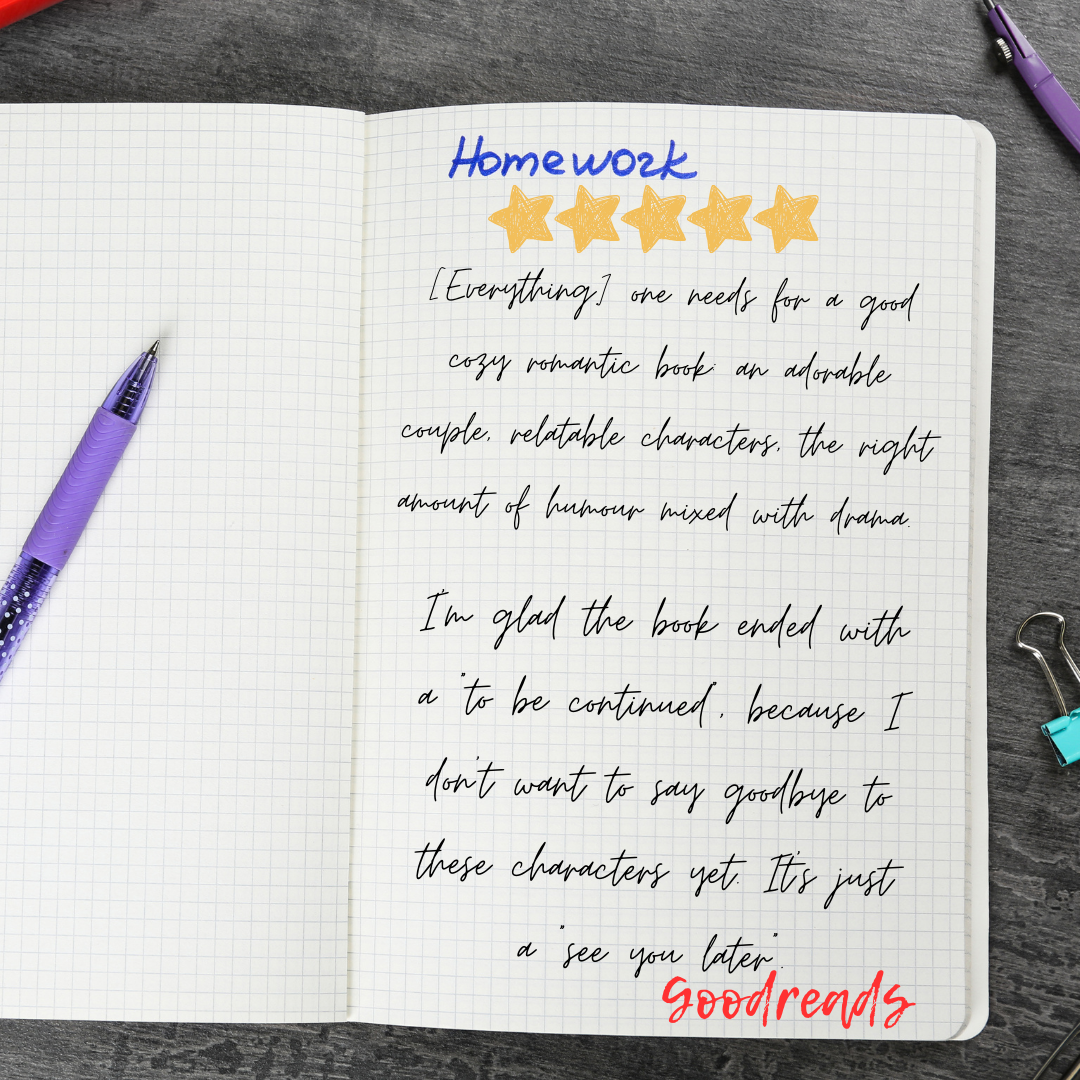 Homework
[Everything] one needs for a good
cozy romantic book: an adorable
couple, relatable characters, the right
amount of humour mixed with drama.
I'm glad the book ended with
a "to be continued", because I
don't want to say goodbye to
these characters yet. It's just
a "see you later".
goodreads